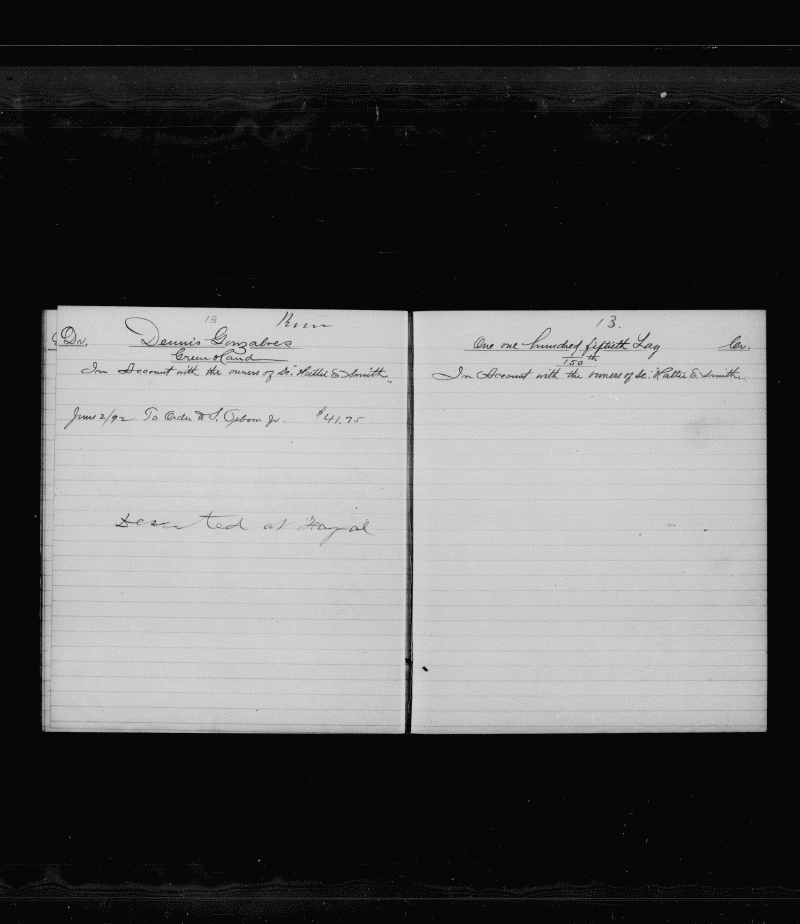 13
Dr. Dennis Gonzalves
Green Hand
In Account with the owners of Sc. Hattie E. Smith.
June 2/92 To Order W. S. Osborn Jr. $41.75
Deserted at Fayal
13.
One one hundred fiftieth Lay Cr.
1/150 th
In Account with the owners of Sc. Hattie E. Smith.